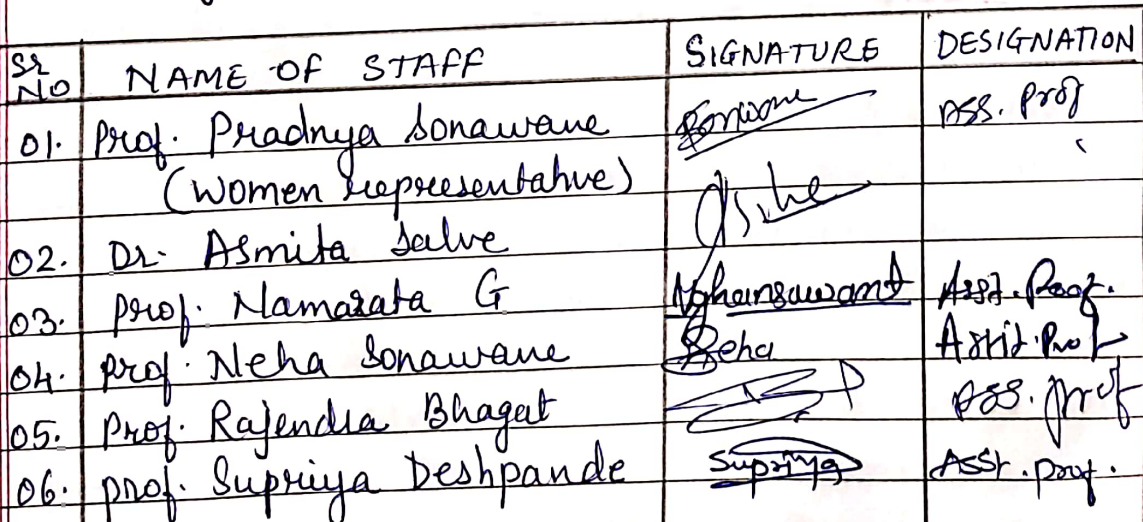 Sr No NAME OF STAFF SIGNATURE DESIGNATION
01. Prof. Pradnya Sonawane Sonawane Ass. Prof
(Women representative)
02. Dr. Asmita Salve
03. Prof. Namarata G Nghansawant Asst. Prof.
04. Prof. Neha Sonawane Neha Assit. Prof
05. Prof. Rajendra Bhagat Ass. Prof
06. Prof. Supriya Deshpande Supriya Asst. Prof.